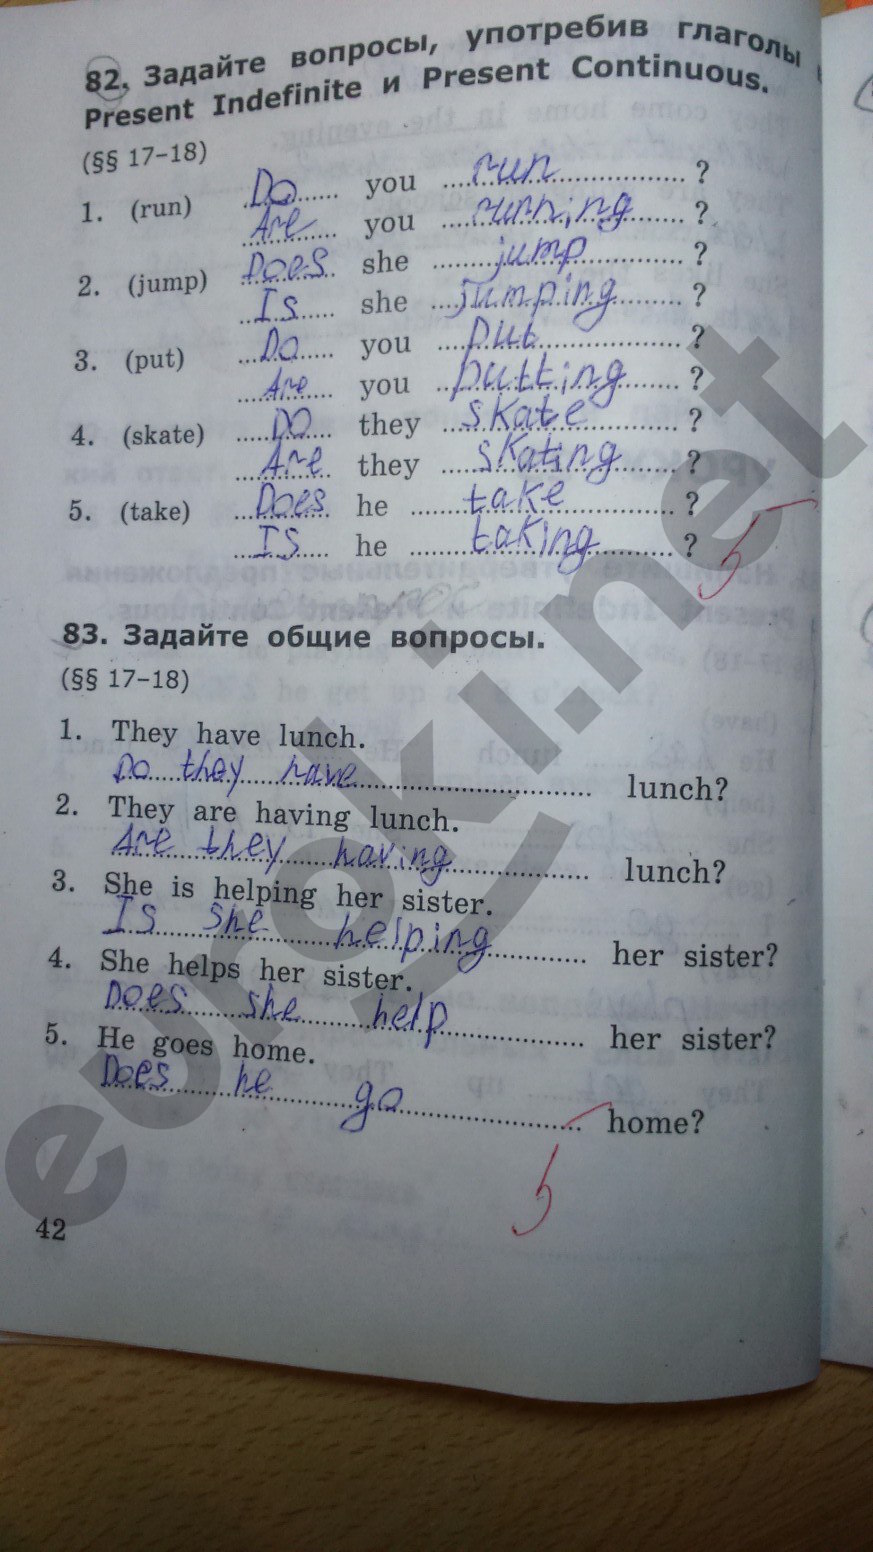 82. Задайте вопросы, употребив глаголы в
Present Indefinite и Present Continuous.
(§§ 17–18)
1. (run) Do you run ?
Are you running ?
2. (jump) Does she jump ?
Is she jumping ?
3. (put) Do you put ?
Are you putting ?
4. (skate) Do they skate ?
Are they skating ?
5. (take) Does he take ?
Is he taking ?
5
83. Задайте общие вопросы.
(§§ 17–18)
1. They have lunch.
Do they have lunch?
2. They are having lunch.
Are they having lunch?
3. She is helping her sister.
Is she helping her sister?
4. She helps her sister.
Does she help her sister?
5. He goes home.
Does he go home?
5
42
euroki.net